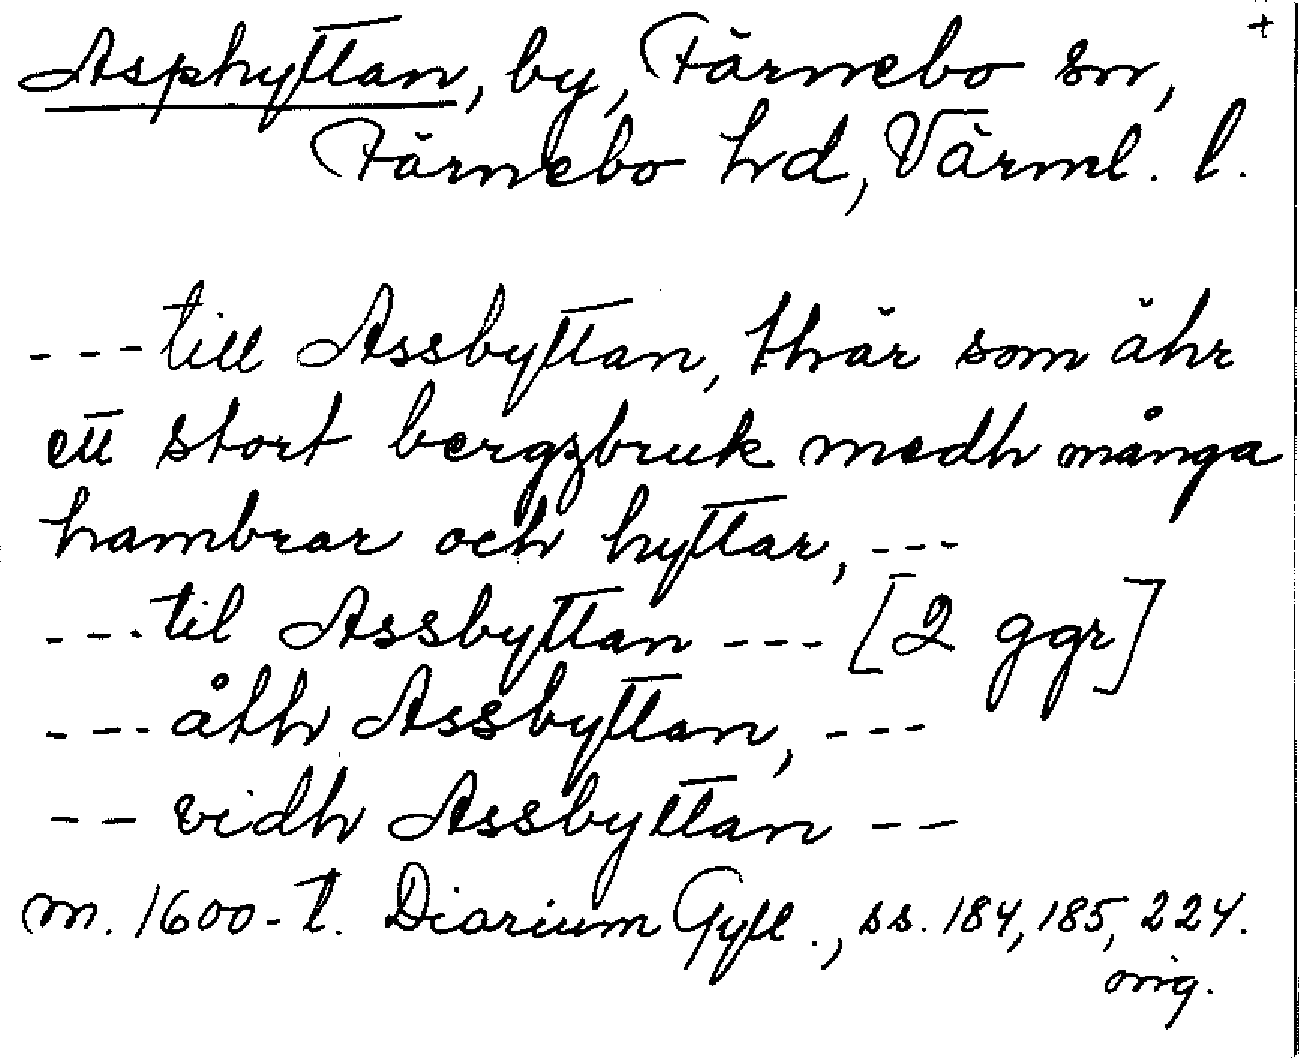 +
Asphyttan, by, Färnebo sn,
Färnebo hd, Värml. l.
--- till Assbyttan, thär som ähr
ett stort bergzbruk medh många
hambrar och hyttar, ---
--- til Assbyttan --- [2 ggr]
--- åth Assbyttan, ---
-- vidh Assbyttan --
m. 1600-t. Diarium Gyll., ss. 184, 185, 224.
orig.